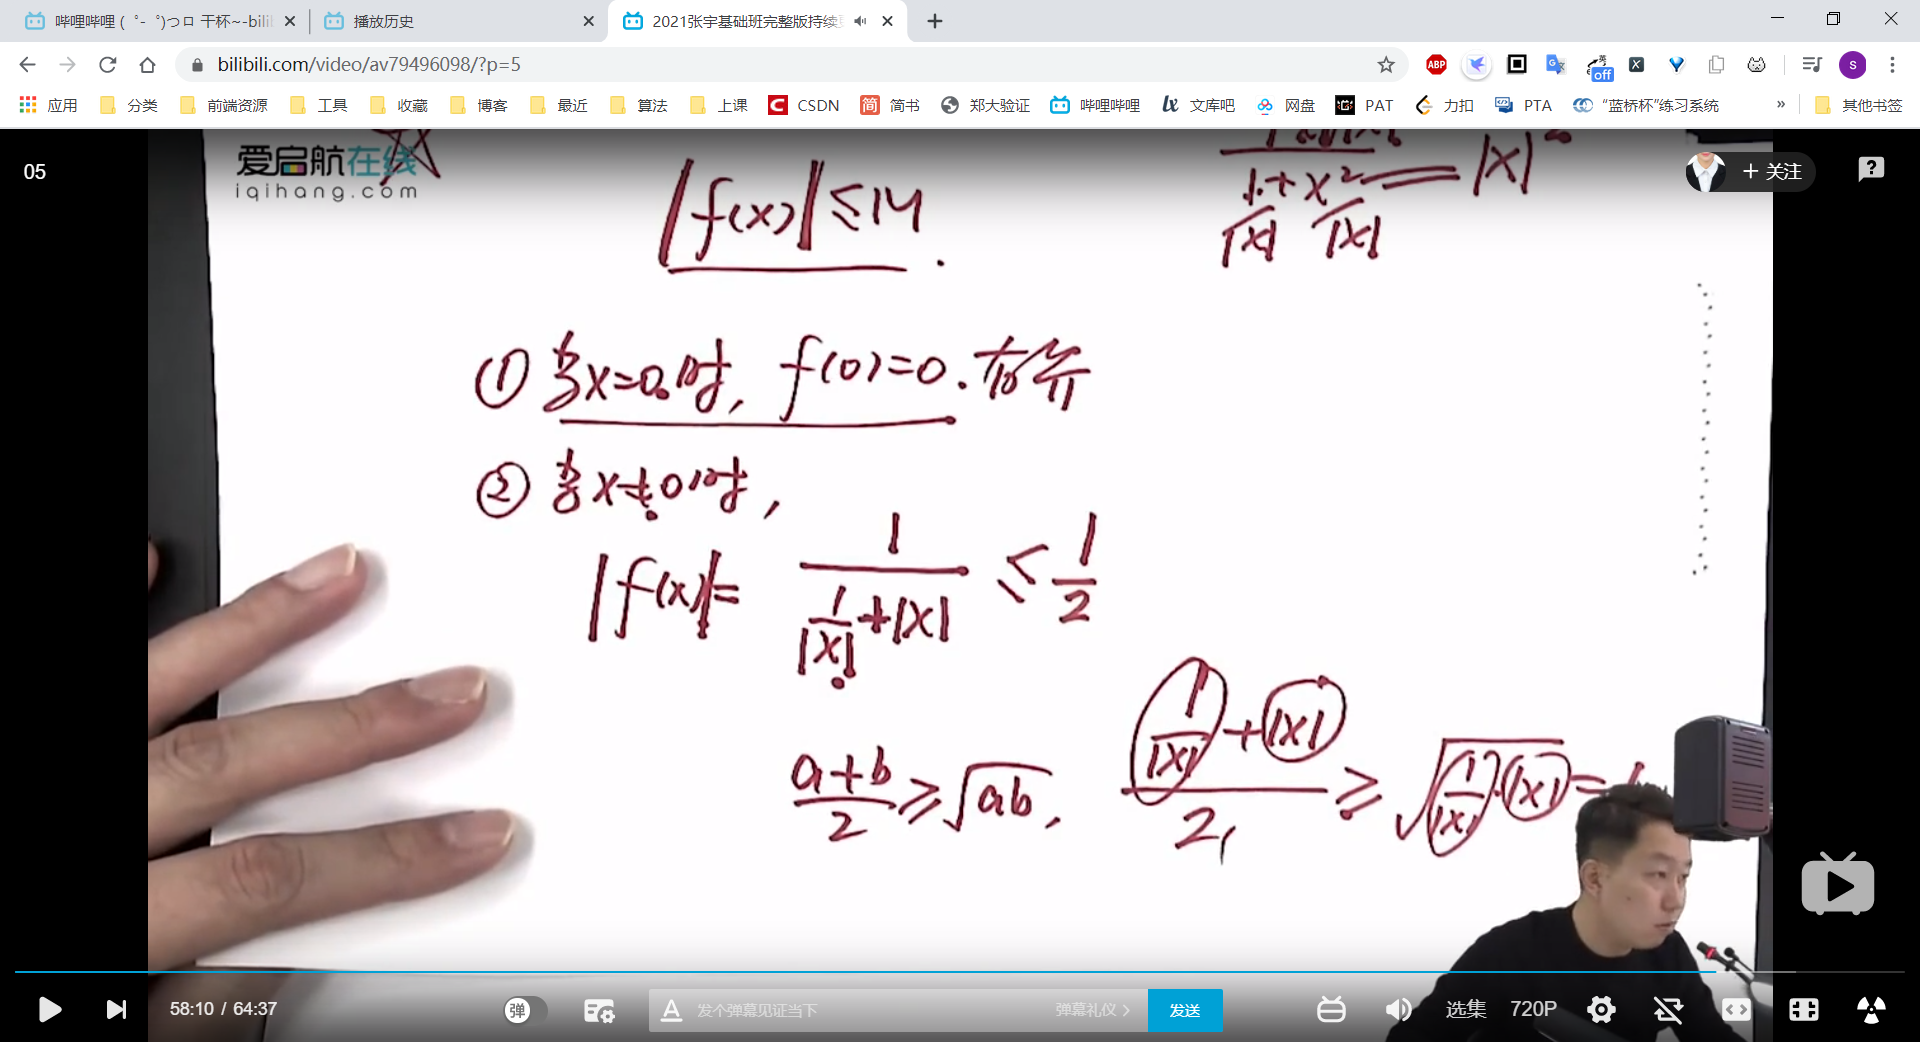 哔哩哔哩 (゜-゜)つロ 干杯~-bili
播放历史
2021张宇基础班完整版持续
bilibili.com/video/av79496098/?p=5
ABP
off
S
应用 分类 前端资源 工具 收藏 博客 最近 算法 上课 CSDN 简书 郑大验证 哔哩哔哩 文库吧 网盘 PAT 力扣 PTA “蓝桥杯”练习系统 » 其他书签
05
爱启航在线
iqihang.com
+ 关注
|f(x)| ≤ M.
1+x² = |x|
|x| |x|
① 当x=0时, f(0)=0. 有界
② 当x≠0时,
|f(x)| = 1/(1/|x|+|x|) ≤ 1/2
(a+b)/2 ≥ √ab, (1/|x|+|x|)/2 ≥ √(1/|x|·|x|) =
58:10 / 64:37
弹
发个弹幕见证当下
弹幕礼仪 >
发送
选集
720P